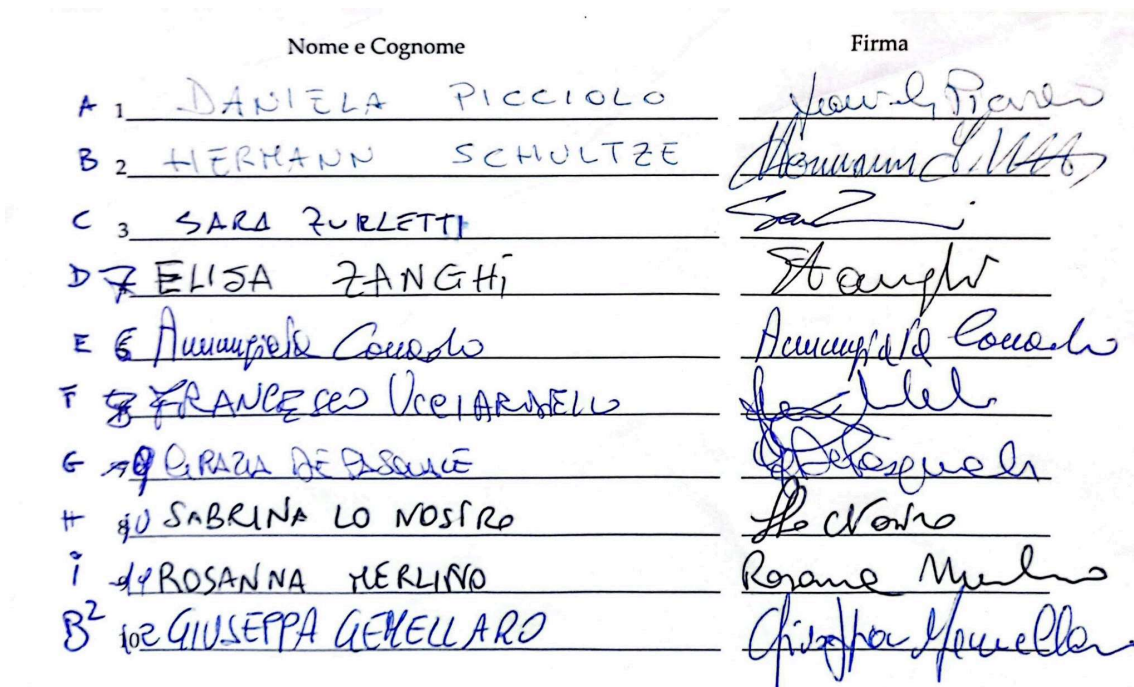 Nome e Cognome Firma
A 1 DANIELA PICCIOLO
B 2 HERMANN SCHULTZE Hermann
C 3 SARA ZURLETTI
D ELISA ZANGHÌ EZanghì
E 6 Annunziata Conrado Annunziata Conrado
F FRANCESCO UCCIARDELLO
G GRAZIA DE PASQUALE G DePasquale
H SABRINA LO NOSTRO SLo Nostro
i ROSANNA MERLINO Rosanna Merlino
B² GIUSEPPA GEMELLARO Giuseppa Gemellaro